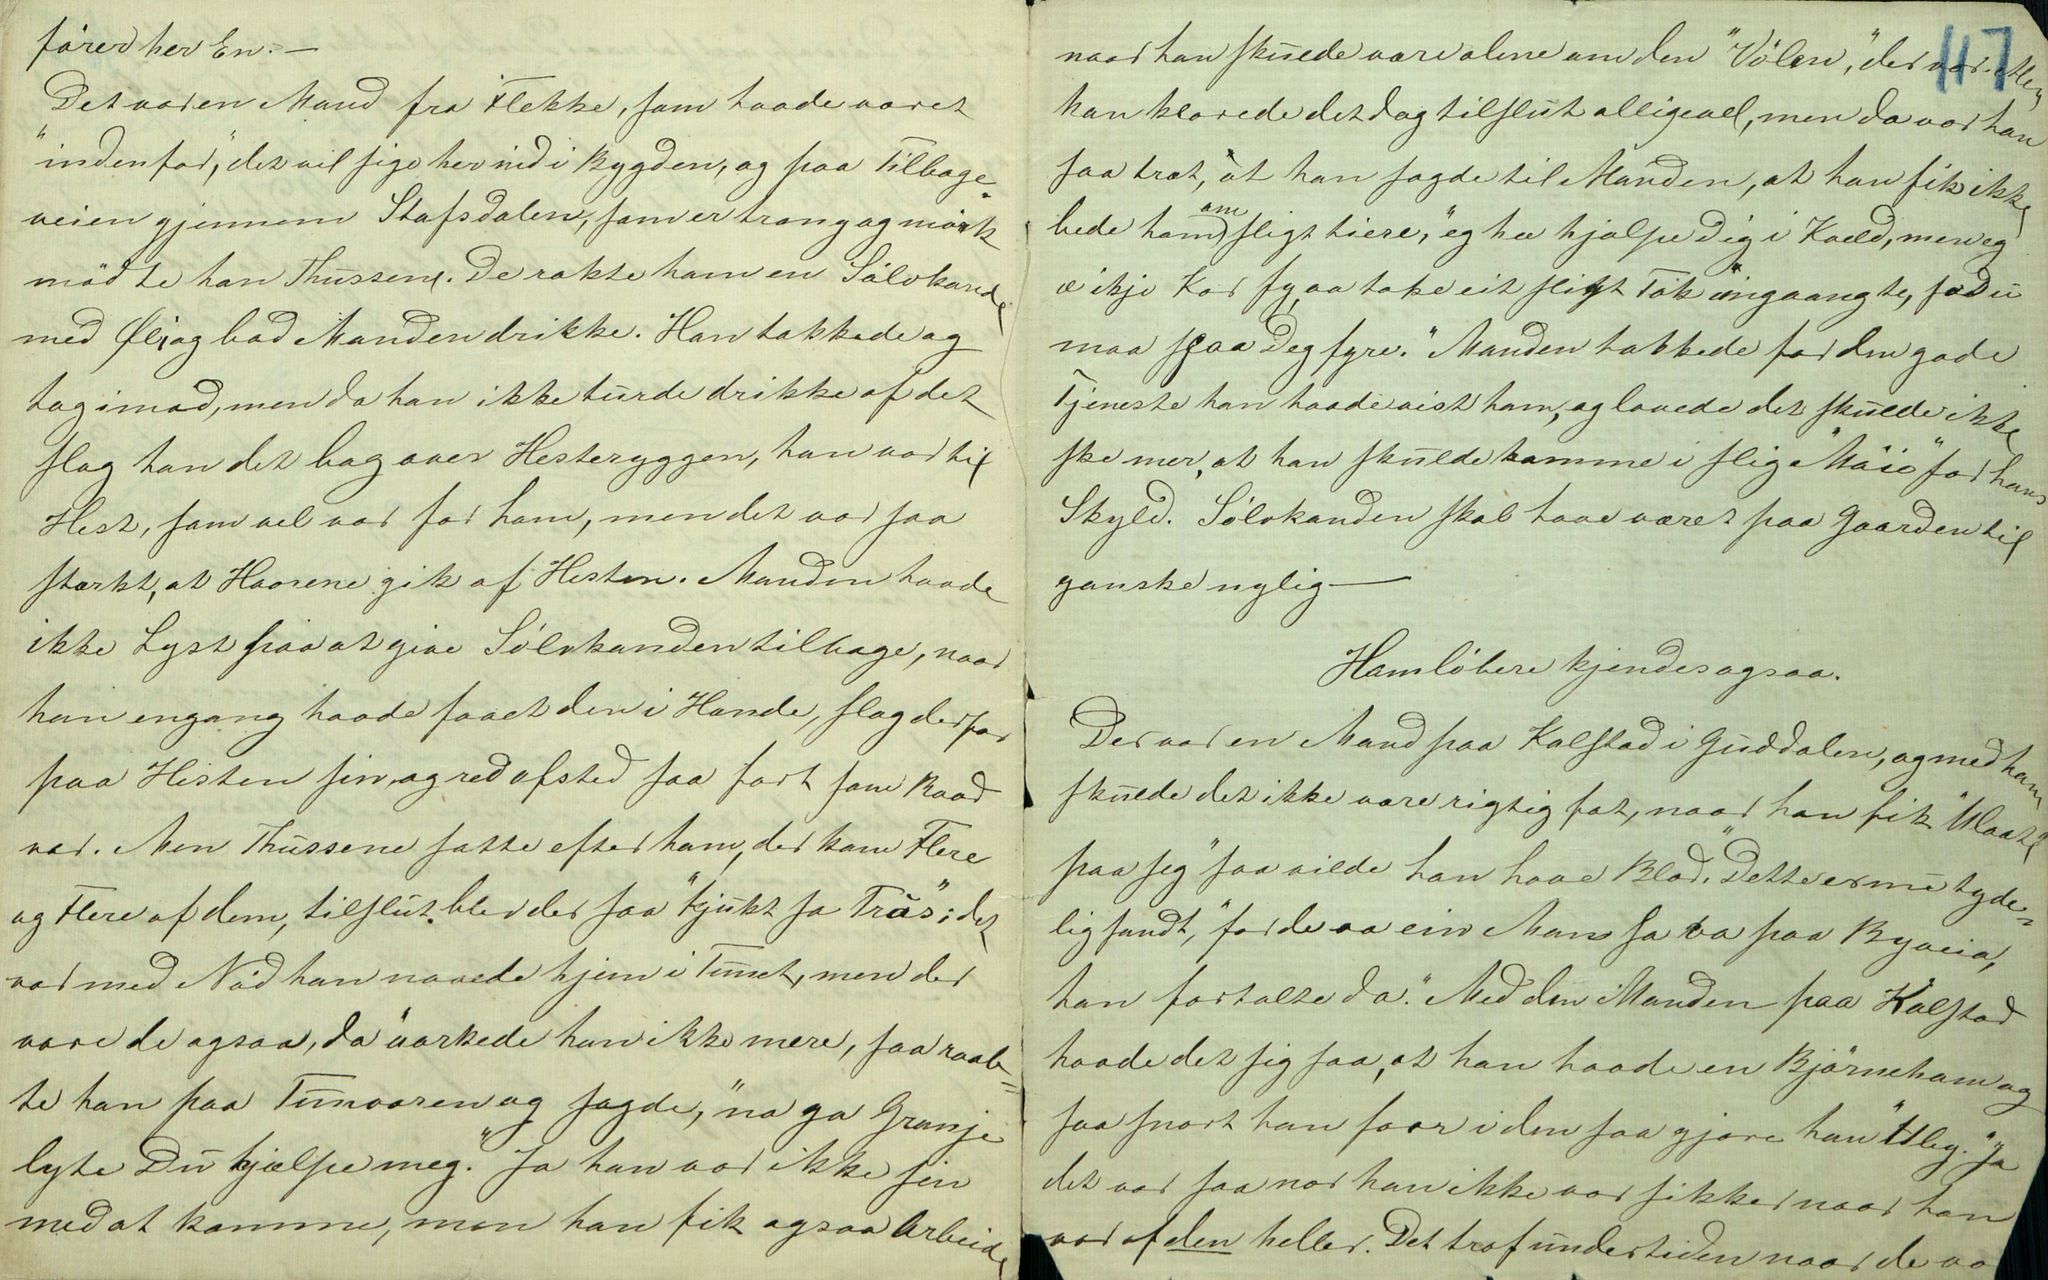 fører her En. —
Det var en Mand fra Flekke, som havde været
"indenfor", det vil sige her ind i Bygden, og paa Tilbage-
veien gjennem Stafsdalen, som er trang og mørk
mødte han Thussene. De rakte ham en Sølvkande
med Øl, og bad Manden drikke. Han takkede og
tog imod, men da han ikke turde drikke af det
slog han det bag over Hesteryggen, han var til
Hest, som vel var for ham, men det var saa
stærkt, at Haarene gik af Hesten. Manden havde
ikke Lyst paa at give Sølvkanden tilbage, naar
han engang havde faaet den i Hande, slog derfor
paa Hesten sin, og red afsted saa fort som Raad
var. Men Thussene satte efter ham, der kom Flere
og Flere af dem, tilslut blev der saa "tjukt so Trås"; det
var med Nød han naaede hjem i Tunet, men der
vare de ogsaa, da "aarkede han ikke mere, saa raab-
te han paa Tunvoren og sagde, "na ga Granje
lyte Du hjælpe meg." Ja han var ikke sen
med at komme, men han fik ogsaa Arbeide
117
naar han skulde være alene um den "Vølen," der var. Men
han klarede det dog tilslut alligevel, men da var han
saa træt, at han sagde til Manden, at han fik ikke
bede ham om sligt tiere, "eg hee hjolpe dig i Kveld, men eg
æ ikje Kar fy, aa take eit sligt Tak "ingaangte, so du
maa spaa Deg fyre." Manden takkede for den gode
Tjeneste han havde vist ham, og lovede det skulde ikke
ske mer, at han skulde komme i slig "Møie" for hans
Skyld. Sølvkanden skal have været paa Gaarden til
ganske nylig —
Hamløbere kjendes ogsaa.
Der var en Mand paa Kalstad i Guddalen, og med ham
skulde det ikke være rigtig fat, naar han fik "Ulaat
paa seg" saa vilde han have Blod. "Dette er nu tyde-
lig sandt," for de va ein Man so va paa Byveia,
han fortalte da." Med den Manden paa Kalstad
havde det sig saa, at han havde en Bjørneham og
saa snart han foor i den saa gjore han "Uleg." Ja
det var saa nær han ikke var sikker naar han
var af den heller. Det traf undertiden naar de va